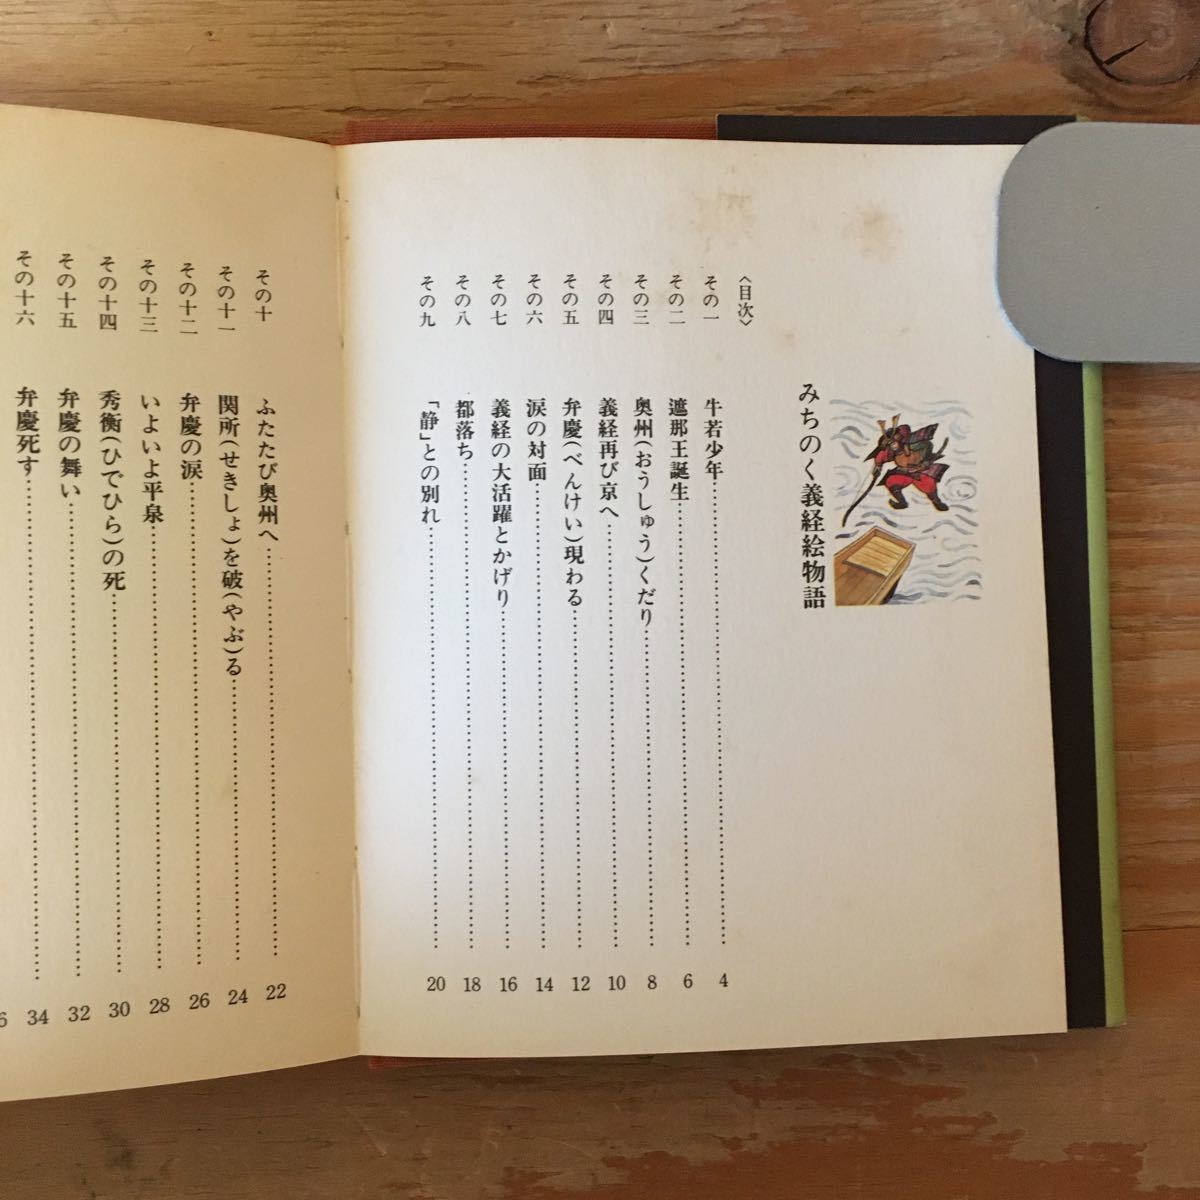 みちのく義経絵物語
〈目次〉
その一 牛若少年 4
その二 遮那王誕生 6
その三 奥州(おうしゅう)くだり 8
その四 義経再び京へ 10
その五 弁慶(べんけい)現わる 12
その六 涙の対面 14
その七 義経の大活躍とかげり 16
その八 都落ち 18
その九 「静」との別れ 20
その十 ふたたび奥州へ 22
その十一 関所(せきしょ)を破(やぶ)る 24
その十二 弁慶の涙 26
その十三 いよいよ平泉 28
その十四 秀衡(ひでひら)の死 30
その十五 弁慶の舞い 32
その十六 弁慶死す 34
6